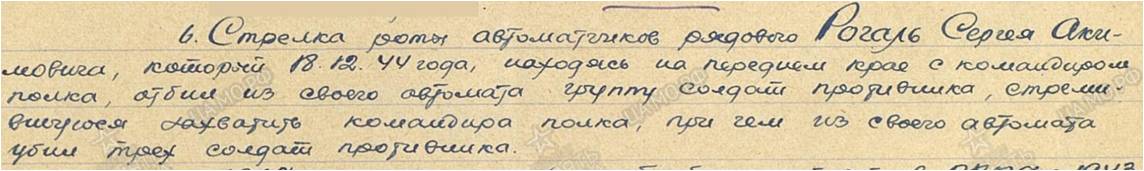 6. Стрелка роты автоматчиков рядового Рогаль Сергея Аки-
мовича, который 18.12.44 года, находясь на переднем крае с командиром
полка, отбил из своего автомата группу солдат противника, стреми-
вшуюся захватить командира полка, при чем из своего автомата
убил трех солдат противника.